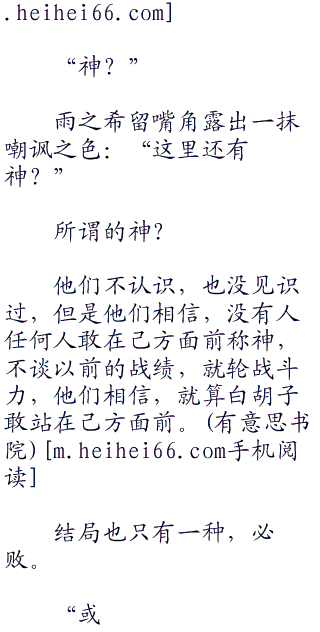 .heihei66.com]
“神？”
雨之希留嘴角露出一抹
嘲讽之色：“这里还有
神？”
所谓的神？
他们不认识，也没见识
过，但是他们相信，没有人
任何人敢在己方面前称神，
不谈以前的战绩，就轮战斗
力，他们相信，就算白胡子
敢站在己方面前。(有意思书
院)[m.heihei66.com手机阅
读]
结局也只有一种，必
败。
“或